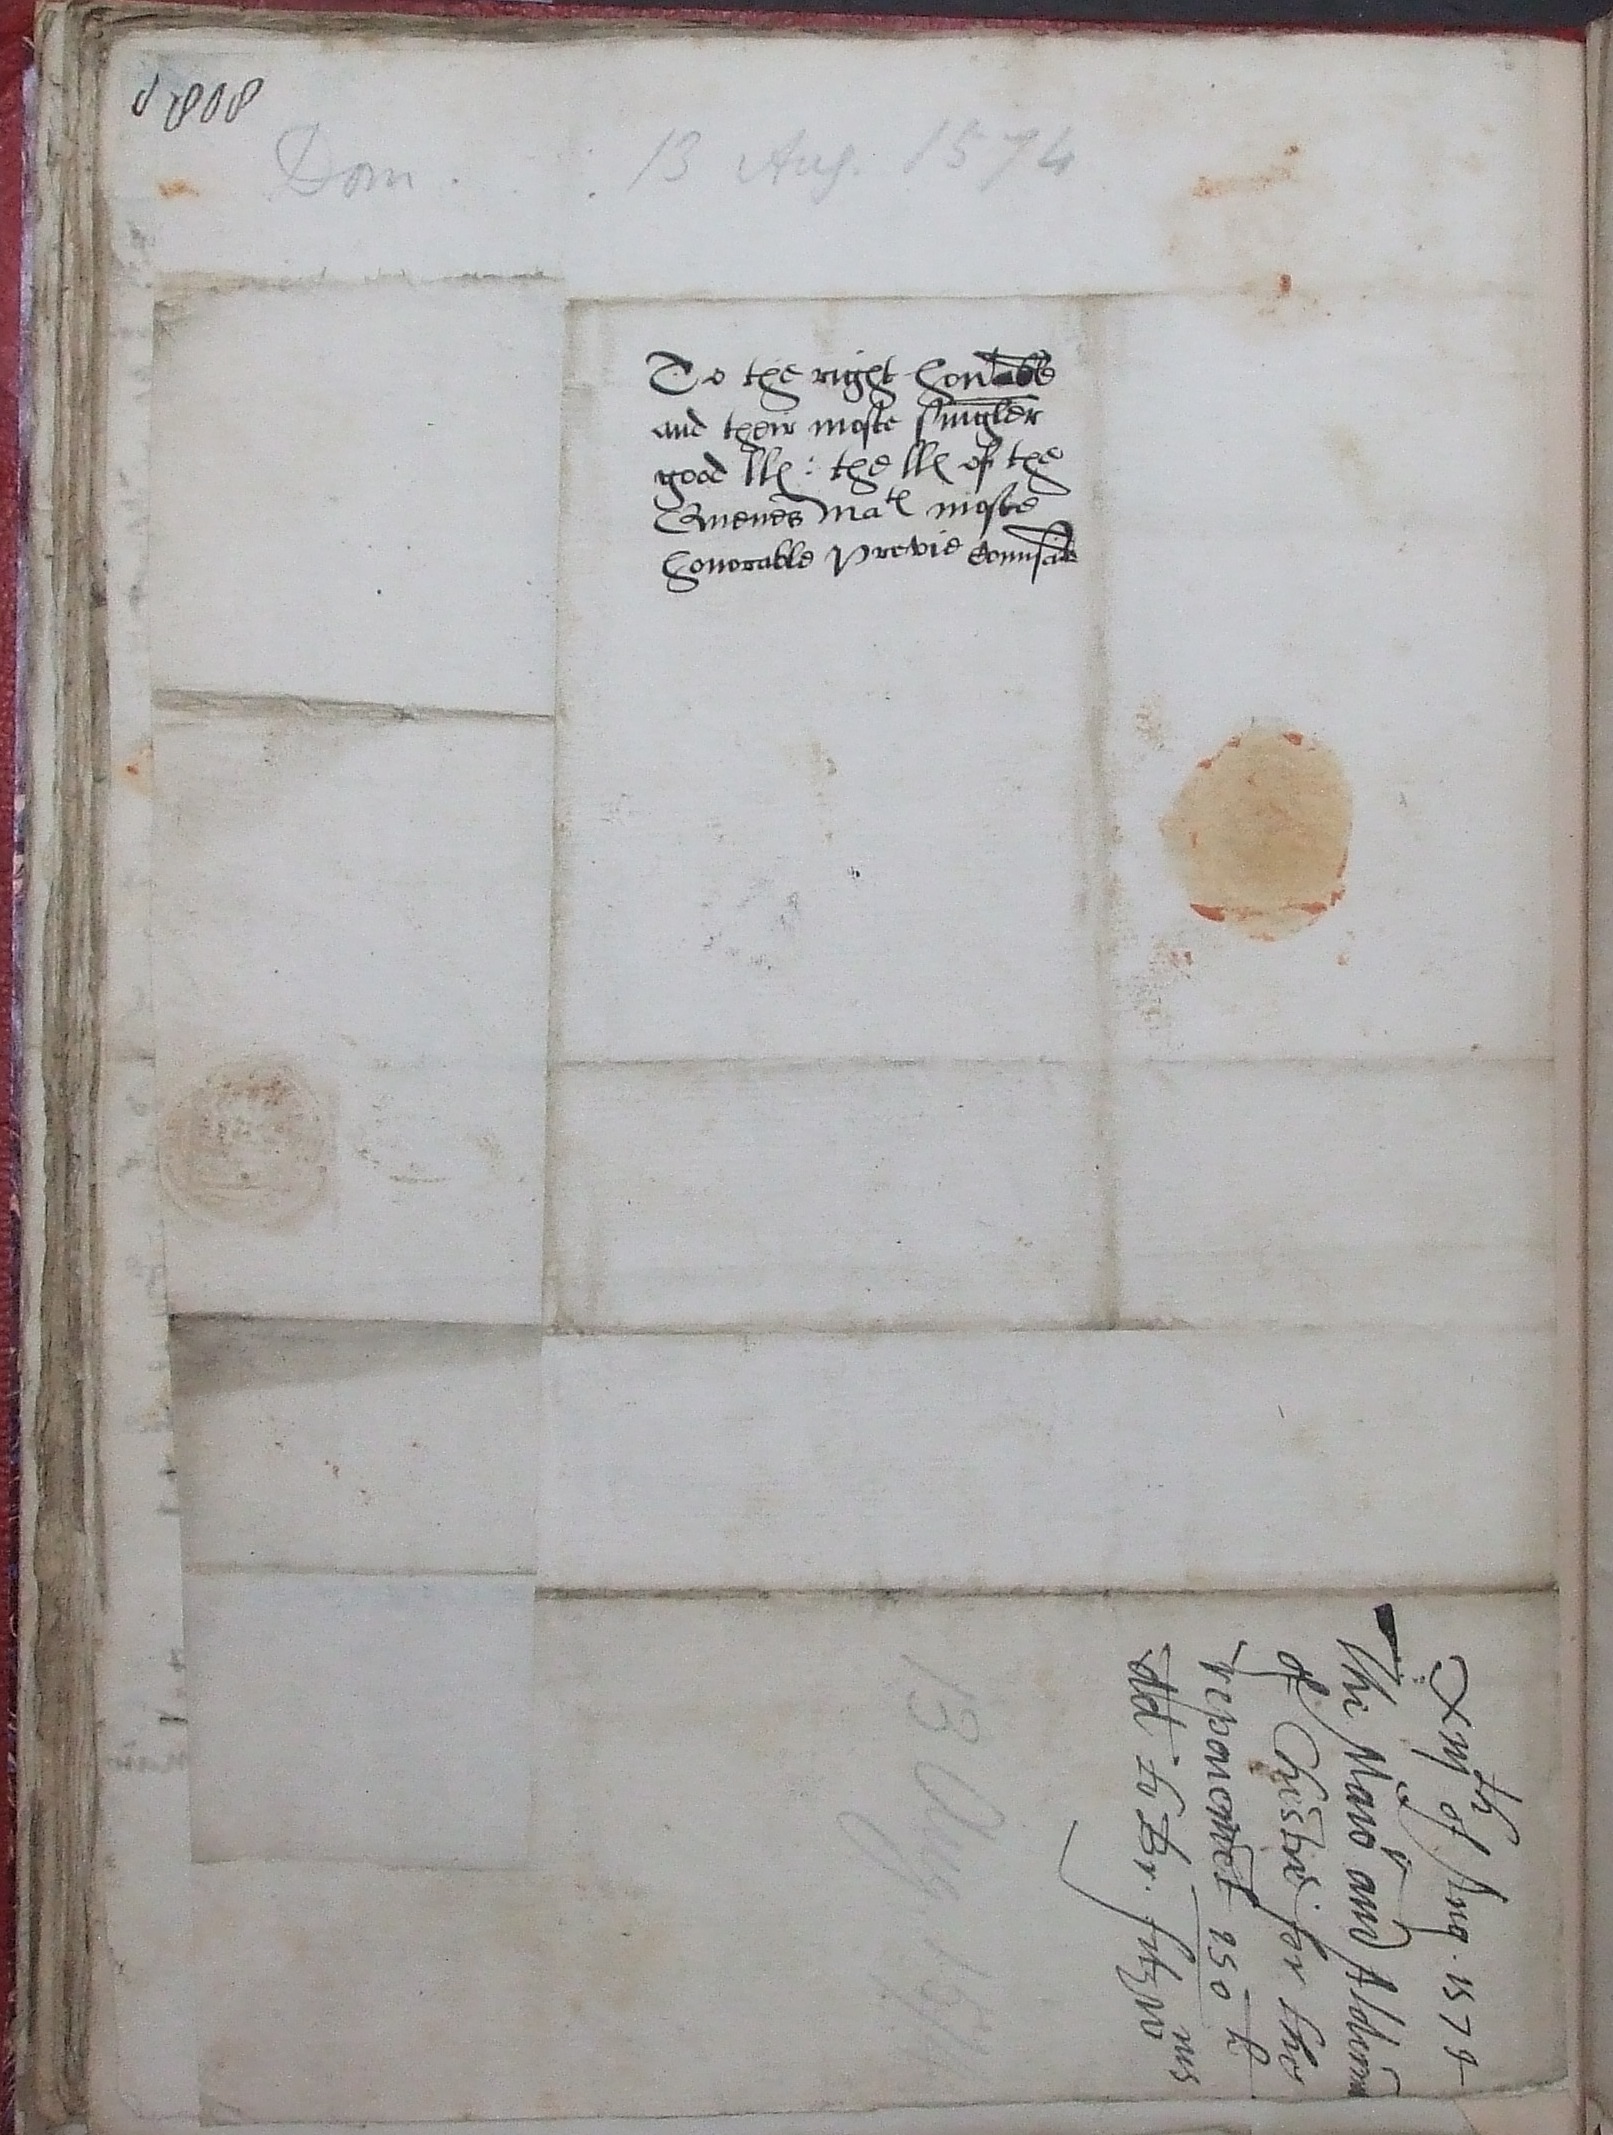 Dom. 13 Aug. 1574
To the right honable
and their moste singler
good ll: the ll of the
Quenes Matie moste
honorable previe Counsale
xiijth of Aug. 1574
The Maior and Alderm
of Chester for the
repaiement 250 li
to Br. fitzwms
13 Aug 1574